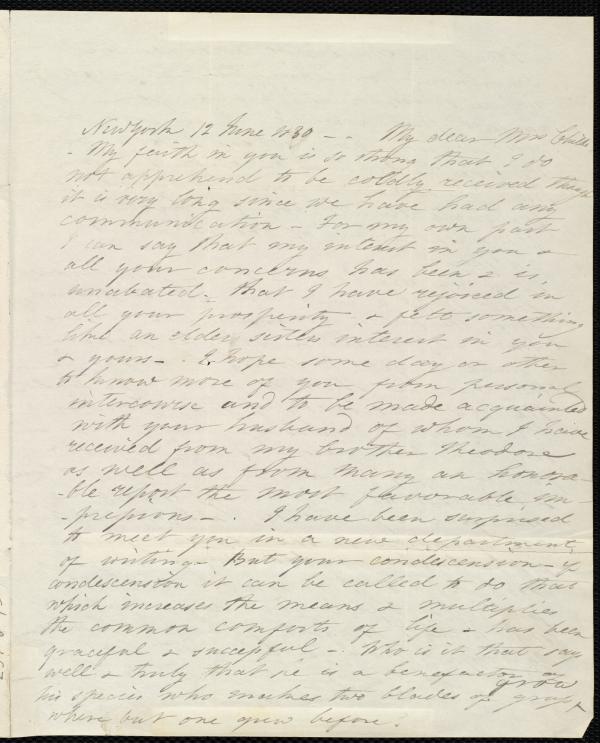 New York 12 June 1830 - - My dear Mrs Child
- My faith in you is so strong that I do
not apprehend to be coldly received though
it is very long since we have had any
communication - For my own part
I can say that my interest in you &
all your concerns has been & is
unabated - that I have rejoiced in
all your prosperity & felt something
like an elder sisters interest in you
& yours - . I hope some day or other
to know more of you from personal
intercourse and to be made acquainted
with your husband of whom I have
received from my brother Theodore
as well as from many an honora-
-ble report the most favorable im-
-pressions - . I have been surprised
to meet you in a new department
of writing - But your condescension - if
condescension it can be called to do that
which increases the means & multiplies
the common comforts of life & has been
graceful & successful - . Who is it that says
well & truly that he is a benefactor of
his species who makes two blades of grass grow
where but one grew before?